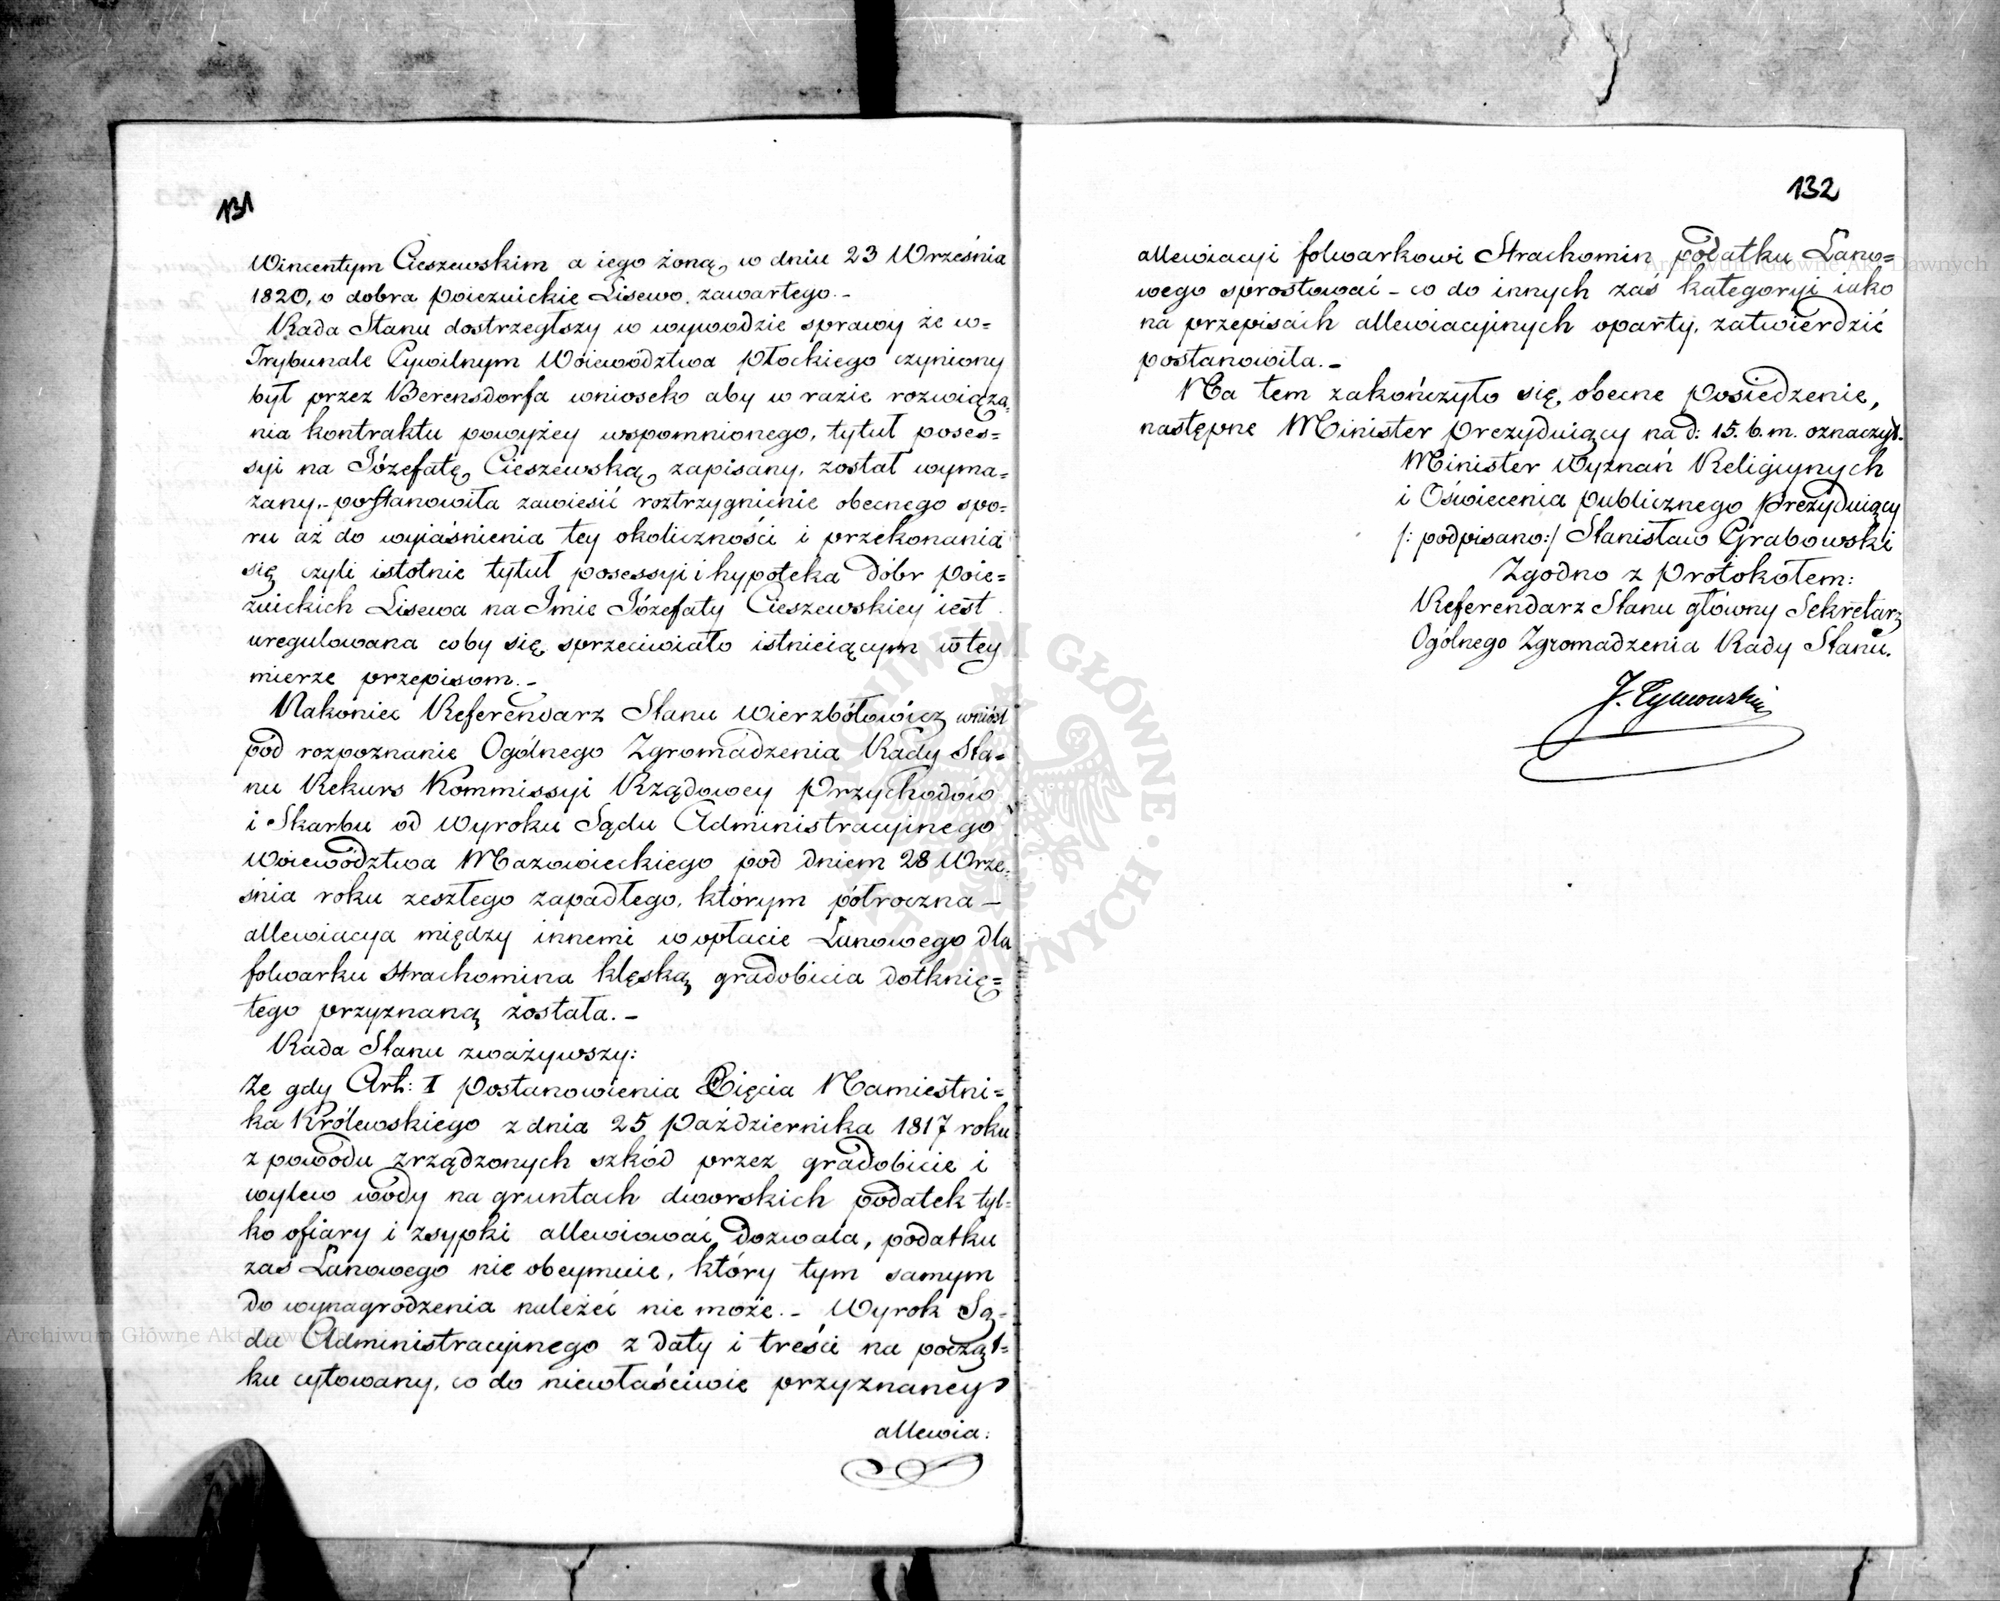 131
Wincentym Cieszewskim a iego żoną, w dniu 23 Września
1820, o dobra poiezuickie Lisewo, zawartego.-
Rada Stanu dostrzegłszy w wywodzie sprawy że w=
Trybunale Cywilnym Woiewództwa Płockiego czyniony
był przez Berensdorfa wniosek aby w razie rozwiąza=
nia kontraktu powyżey wspomnionego, tytuł poses=
syi na Józefatę Cieszewską zapisany, został wyma=
zany,- postanowiła zawiesić roztrzygnienie obecnego spo=
ru aż do wyiaśnienia tey okoliczności i przekonania
się czyli istotnie tytuł posessyi i hypoteka dóbr poie=
zuickich Lisewa na Imie Józefaty Cieszewskiey iest
uregulowana coby się sprzeciwiało istnieiącym w tey
mierze przepisom.-
Nakoniec Referendarz Stanu Wierzbołowicz wniósł
pod rozpoznanie Ogólnego Zgromadzenia Rady Sta=
nu Rekurs Kommissyi Rządowey Przychodów
i Skarbu od Wyroku Sądu Administracyinego
Woiewództwa Mazowieckiego pod dniem 28 Wrze=
śnia roku zeszłego zapadłego, którym półroczna -
allewiacya między innemi w opłacie Łanowego dla
folwarku Strachomina klęską gradobicia dotknię=
tego przyznaną została.-
Rada Stanu zważywszy:
Że gdy Art: I Postanowienia Xięcia Namiestni=
ka Królewskiego z dnia 25 Października 1817 roku
z powodu zrządzonych szkód przez gradobicie i
wylew wody na gruntach dworskich podatek tyl=
ko ofiary i zsypki allewiować dozwala, podatku
zaś Łanowego nie obeymuie, który tym samym
do wynagrodzenia należeć nie może.- Wyrok Są=
du Administracyinego z daty i treści na począt=
ku cytowany, co do niewłaściwie przyznaney
allewia:
132
allewiacyi folwarkowi Strachomin podatku Łano=
wego sprostować - co do innych zaś kategoryi iako
na przepisach allewiacyinych oparty, zatwierdzić
postanowiła.-
Na tem zakończyło się obecne posiedzenie,
następne Minister Prezyduiący na d: 15. b. m. oznaczył.
Minister Wyznań Religiynych
i Oświecenia Publicznego Prezyduiący
/: podpisano:/ Stanisław Grabowski
Zgodno z Protokołem:
Referendarz Stanu główny Sekretarz
Ogólnego Zgromadzenia Rady Stanu.
J. Tymowski
Archiwum Główne Akt Dawnych
Archiwum Główne Akt Dawnych
ARCHIWUM GŁÓWNE AKT DAWNYCH